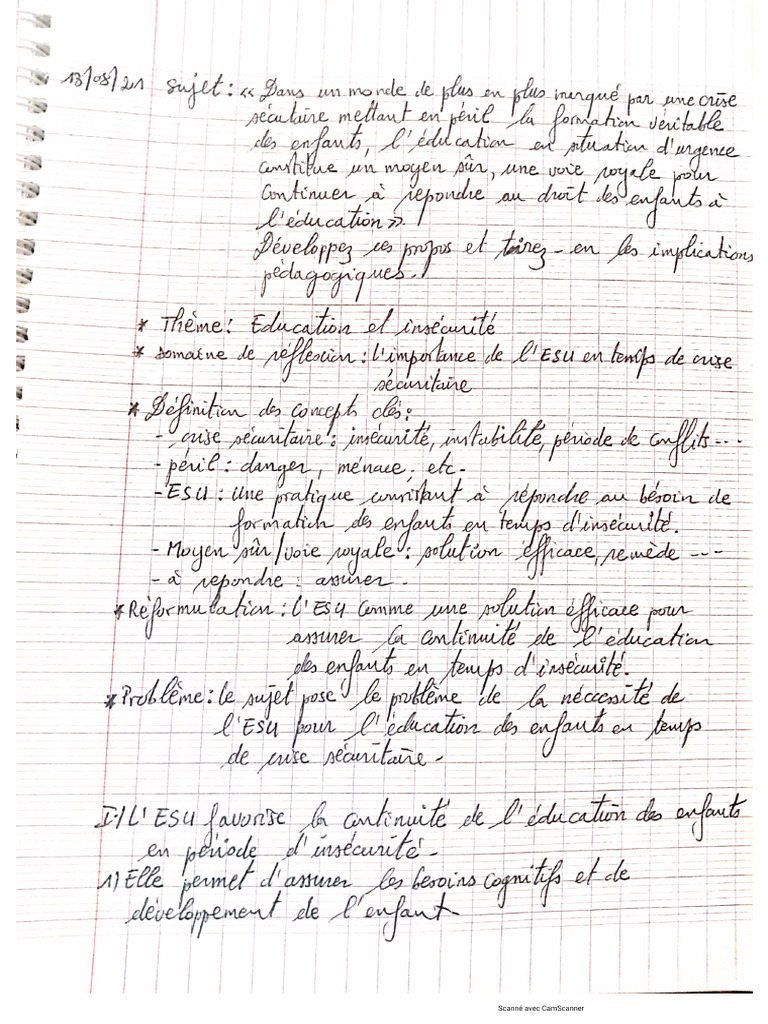 13/08/21 Sujet : « Dans un monde de plus en plus marqué par une crise
sécuritaire mettant en péril la formation véritable
des enfants, l'éducation en situation d'urgence
constitue un moyen sûr, une voie royale pour
continuer à repondre au droit des enfants à
l'éducation ».
Développez ces propos et tirez-en les implications
pédagogiques.
* Thème : Education et insécurité
* Domaine de réflexion : l'importance de l'ESU en temps de crise
sécuritaire
* Définition des concepts clés :
- crise sécuritaire : insécurité, instabilité, période de conflits ...
- péril : danger, ménace, etc.
- ESU : une pratique consistant à répondre au bésoin de
formation des enfants en temps d'insécurité.
- Moyen sûr/voie royale : solution efficace, remède ...
- à repondre : assurer.
* Réformulation : l'ESU comme une solution éfficace pour
assurer la continuité de l'éducation
des enfants en temps d'insécurité.
* Problème : le sujet pose le problème de la nécessité de
l'ESU pour l'éducation des enfants en temps
de crise sécuritaire.
I-/ L'ESU favorise la continuité de l'éducation des enfants
en période d'insécurité.
1) Elle permet d'assurer les besoins cognitifs et de
développement de l'enfant.
Scanné avec CamScanner